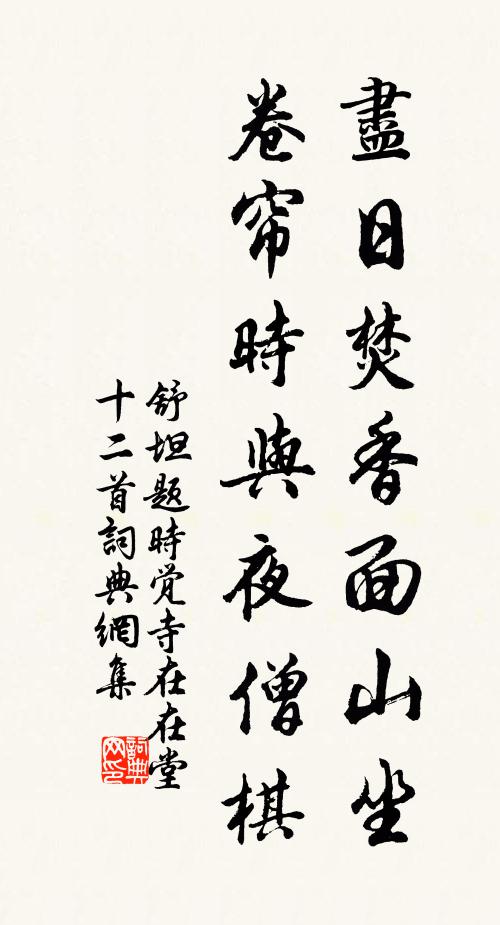 盡日焚香面山坐
卷帘時與夜僧棋
舒坦题時觉寺在在堂
十二首詞典網集
詞典
网印